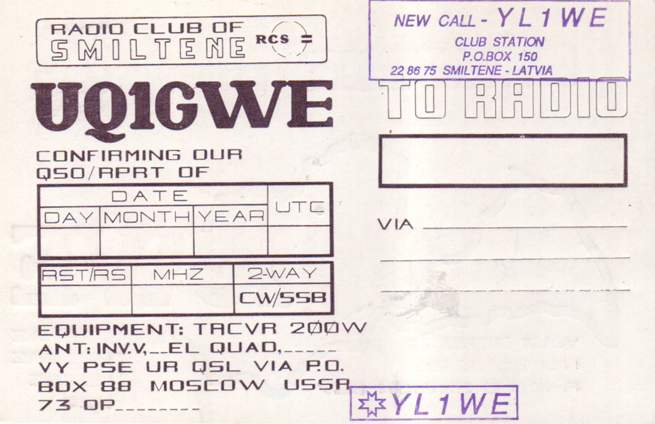 RADIO CLUB OF
SMILTENE RCS =
NEW CALL - YL1WE
CLUB STATION
P.O.BOX 150
22 86 75 SMILTENE - LATVIA
UQ1GWE
TO RADIO
CONFIRMING OUR
QSO/RPRT OF
DATE
DAY MONTH YEAR UTC
RST/RS MHZ 2-WAY
CW/SSB
VIA
EQUIPMENT: TRCVR 200W
ANT: INV.V,__EL QUAD,_____
VY PSE UR QSL VIA P.O.
BOX 88 MOSCOW USSR
73 OP________
YL1WE